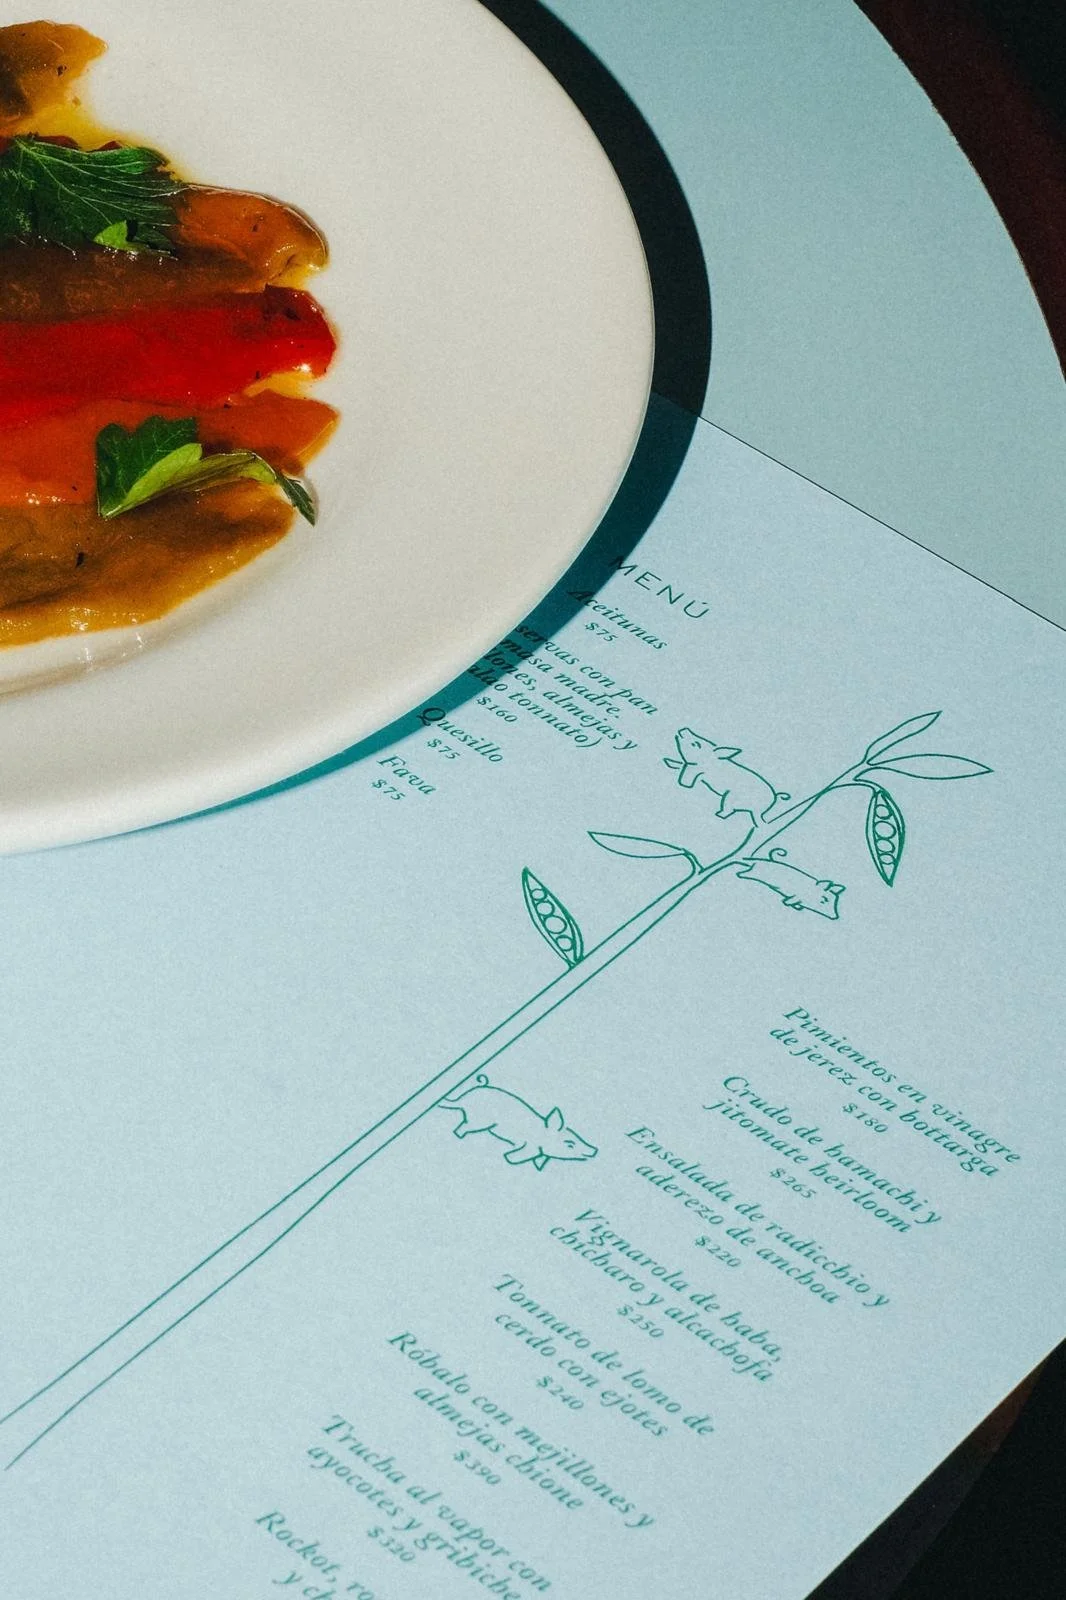 MENÚ
Aceitunas
$75
con pan
masa madre.
almejas y
tonnato)
$160
Quesillo
$75
Fava
$75
Pimientos en vinagre
de jerez con bottarga
$180
Crudo de hamachi y
jitomate heirloom
$265
Ensalada de radicchio y
aderezo de anchoa
$220
Vignarola de haba,
chícharo y alcachofa
$250
Tonnato de lomo de
cerdo con ejotes
$240
Róbalo con mejillones y
almejas chione
$390
Trucha al vapor con
ayocotes y gribiche
$320
Rockot,
y